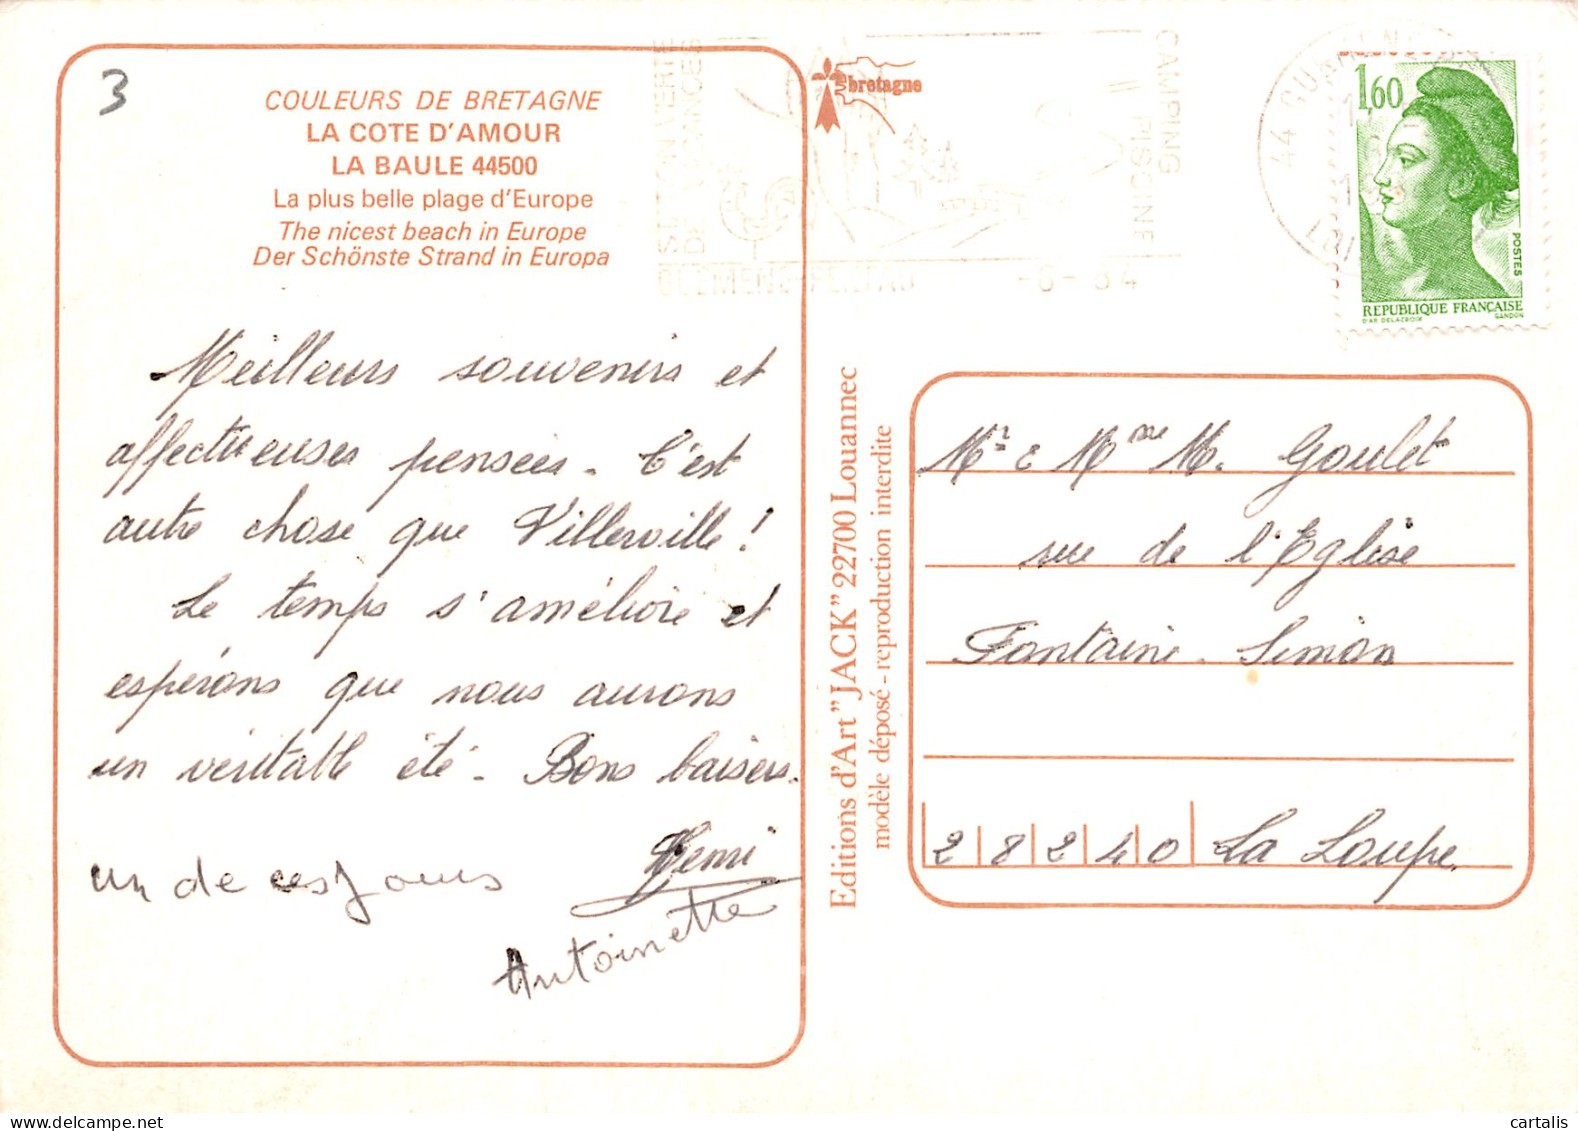 3
COULEURS DE BRETAGNE
LA COTE D'AMOUR
LA BAULE 44500
La plus belle plage d'Europe
The nicest beach in Europe
Der Schönste Strand in Europa
Meilleurs souvenirs et
affectueuses pensées. C'est
autre chose que Villerville!
Le temps s'améliore et
espérons que nous aurons
un véritable été. Bons baisers.
un de ces Jours
Henri
Antoinette
bretagne
STATION VERTE
DE VANCES
CAMPING
PISCINE
-6-84
44 GU
1,60
POSTES
REPUBLIQUE FRANÇAISE
D'AP. DELACROIX GANDON
Editions d'Art "JACK" 22700 Louannec
modèle déposé - reproduction interdite
Mr & Mme M. Goulet
rue de l'Eglise
Fontaine-Simon
28240 La Loupe.
cartalis